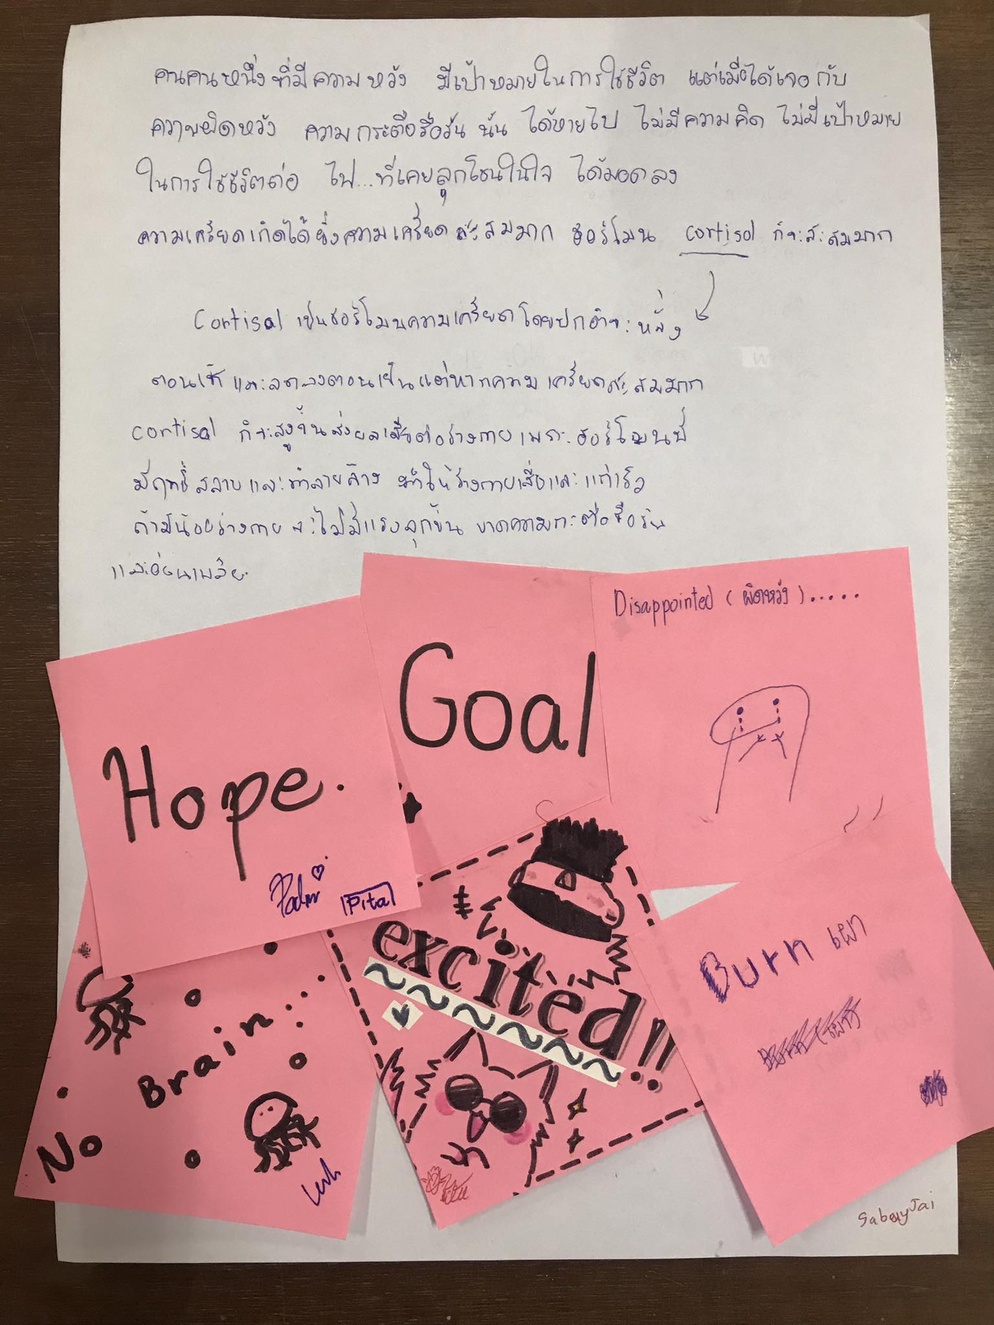 คนคนหนึ่งที่มีความหวัง มีเป้าหมายในการใช้ชีวิต แต่เมื่อได้เจอกับ
ความผิดหวัง ความกระตือรือร้น นั้น ได้หายไป ไม่มีความคิด ไม่มีเป้าหมาย
ในการใช้ชีวิตต่อ ไฟ...ที่เคยลุกโชนในใจ ได้มอดลง
ความเครียดเกิดได้ยิ่งความเครียดสะสมมาก ฮอร์โมน cortisol ก็จะสะสมมาก
Cortisal เป็นฮอร์โมนความเครียดโดยปกติจะหลั่ง
ตอนเช้าและลดลงตอนเย็นแต่หากความเครียดสะสมมาก
cortisal ก็จะสูงขึ้นส่งผลเสียต่อร่างกายเพราะฮอร์โมนนี้
มีฤทธิ์สลายและทำลายล้าง ทำให้ร่างกายเสื่อมและแก่เร็ว
ถ้ามีน้อยร่างกายจะไม่มีแรงลุกขึ้น ขาดความกะตือรือร้น
และอ่อนเพลีย
Hope.
Pita
Goal
Disappointed (ผิดหวัง).....
No Brain...
excited!!
Burn เผา
SabayJai